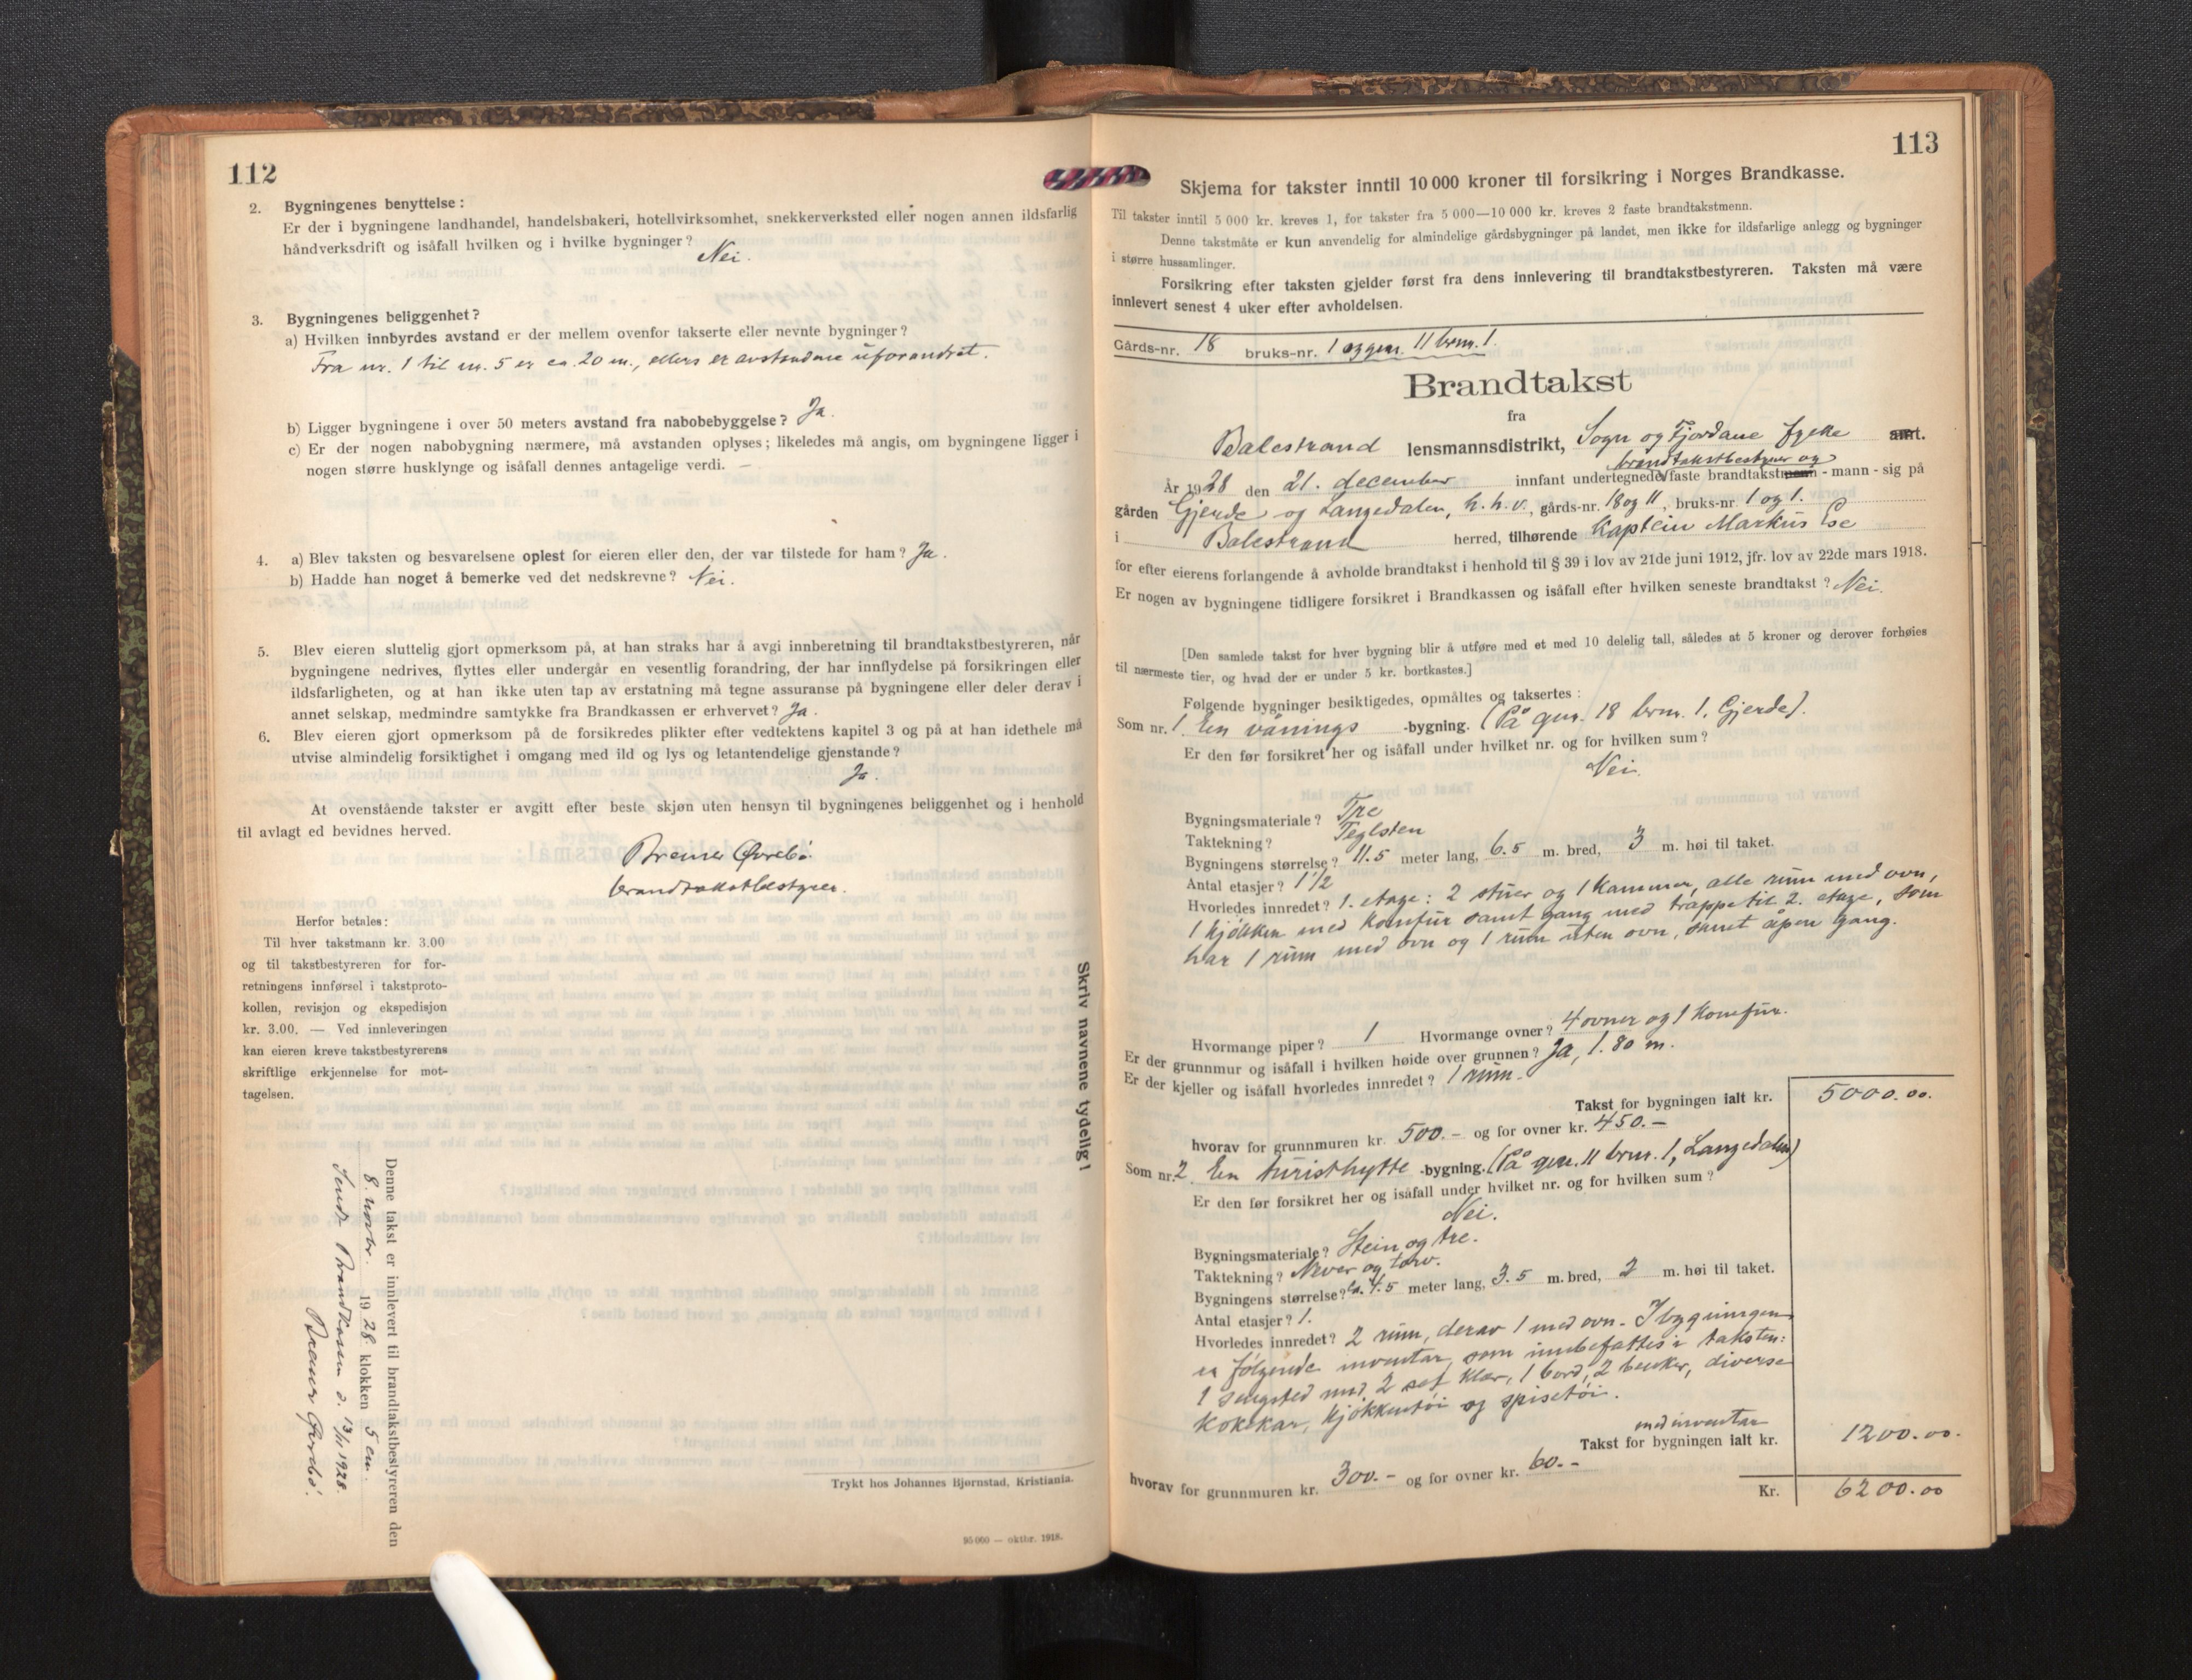 112
2. Bygningenes benyttelse:
Er der i bygningene landhandel, handelsbakeri, hotellvirksomhet, snekkerverksted eller nogen annen ildsfarlig
håndverksdrift og isåfall hvilken og i hvilke bygninger? Nei.
3. Bygningenes beliggenhet?
a) Hvilken innbyrdes avstand er der mellem ovenfor takserte eller nevnte bygninger?
Fra nr. 1 til nr. 5 er ca. 20 m., ellers er avstandene uforandret.
b) Ligger bygningene i over 50 meters avstand fra nabobebyggelse? Ja.
c) Er der nogen nabobygning nærmere, må avstanden oplyses; likeledes må angis, om bygningene ligger i
nogen større husklynge og isåfall dennes antagelige verdi. –
4. a) Blev taksten og besvarelsene oplest for eieren eller den, der var tilstede for ham? Ja.
b) Hadde han noget å bemerke ved det nedskrevne? Nei.
5. Blev eieren sluttelig gjort opmerksom på, at han straks har å avgi innberetning til brandtakstbestyreren, når
bygningene nedrives, flyttes eller undergår en vesentlig forandring, der har innflydelse på forsikringen eller
ildsfarligheten, og at han ikke uten tap av erstatning må tegne assuranse på bygningene eller deler derav i
annet selskap, medmindre samtykke fra Brandkassen er erhvervet? Ja.
6. Blev eieren gjort opmerksom på de forsikredes plikter efter vedtektens kapitel 3 og på at han idethele må
utvise almindelig forsiktighet i omgang med ild og lys og letantendelige gjenstande?
Ja.
At ovenstående takster er avgitt efter beste skjøn uten hensyn til bygningenes beliggenhet og i henhold
til avlagt ed bevidnes herved.
Bremer Øvrebø
brandtakstbestyrer.
Herfor betales:
Til hver takstmann kr. 3.00
og til takstbestyreren for for-
retningens innførsel i takstproto-
kollen, revisjon og ekspedisjon
kr. 3.00. — Ved innleveringen
kan eieren kreve takstbestyrerens
skriftlige erkjennelse for mot-
tagelsen.
Denne takst er innlevert til brandtakstbestyreren den
8. novbr. 1928 klokken 5 em.
Sendt Brandkassen d. 13/11 1928.
Bremer Øvrebø.
Skriv navnene tydelig!
Trykt hos Johannes Bjørnstad, Kristiania.
95 000 — oktbr. 1918.
113
Skjema for takster inntil 10 000 kroner til forsikring i Norges Brandkasse.
Til takster inntil 5 000 kr. kreves 1, for takster fra 5 000—10 000 kr. kreves 2 faste brandtakstmenn.
Denne takstmåte er kun anvendelig for almindelige gårdsbygninger på landet, men ikke for ildsfarlige anlegg og bygninger
i større hussamlinger.
Forsikring efter taksten gjelder først fra dens innlevering til brandtakstbestyreren. Taksten må være
innlevert senest 4 uker efter avholdelsen.
Gårds-nr. 18 bruks-nr. 1 og gnr. 11 brnr. 1.
Brandtakst
fra
Balestrand lensmannsdistrikt, Sogn og Fjordane fylke amt.
brandtakstbestyrer og
År 1928 den 21. december innfant undertegnede faste brandtakstmenn - mann - sig på
gården Gjerde og Langedalen, h. h. v., gårds-nr. 18 og 11, bruks-nr. 1 og 1.
i Balestrand herred, tilhørende Kaptein Markus Ese
for efter eierens forlangende å avholde brandtakst i henhold til § 39 i lov av 21de juni 1912, jfr. lov av 22de mars 1918.
Er nogen av bygningene tidligere forsikret i Brandkassen og isåfall efter hvilken seneste brandtakst? Nei.
[Den samlede takst for hver bygning blir å utføre med et med 10 delelig tall, således at 5 kroner og derover forhøies
til nærmeste tier, og hvad der er under 5 kr. bortkastes.]
Følgende bygninger besiktigedes, opmåltes og taksertes:
Som nr. 1. En vånings -bygning. (På gnr. 18 brnr. 1. Gjerde).
Er den før forsikret her og isåfall under hvilket nr. og for hvilken sum?
Nei.
Bygningsmateriale? Tre
Taktekning? Teglsten
Bygningens størrelse? 11.5 meter lang, 6.5 m. bred, 3 m. høi til taket.
Antal etasjer? 1½
Hvorledes innredet? 1. etage: 2 stuer og 1 kammer, alle rum med ovn,
1 kjøkken med komfur samt gang med trappe til 2. etage, som
har 1 rum med ovn og 1 rum uten ovn, samt åpen gang.
Hvormange piper? 1 Hvormange ovner? 4 ovner og 1 komfur.
Er der grunnmur og isåfall i hvilken høide over grunnen? Ja, 1.80 m.
Er der kjeller og isåfall hvorledes innredet? 1 rum.
Takst for bygningen ialt kr. 5000.00.
hvorav for grunnmuren kr. 500.– og for ovner kr. 450.–
Som nr. 2. En turisthytte -bygning. (På gnr. 11 brnr. 1, Langedalen)
Er den før forsikret her og isåfall under hvilket nr. og for hvilken sum?
Nei.
Bygningsmateriale? Stein og tre.
Taktekning? Never og torv.
Bygningens størrelse? ca. 4.5 meter lang, 3.5 m. bred, 2 m. høi til taket.
Antal etasjer? 1.
Hvorledes innredet? 2 rum, derav 1 med ovn. I bygningen
er følgende inventar, som innbefattes i taksten:
1 sengsted med 2 set klær, 1 bord, 2 benker, diverse
kokekar, kjøkkentøi og spisetøi.
med inventar
Takst for bygningen ialt kr. 1200.00.
hvorav for grunnmuren kr. 300.– og for ovner kr. 60.–
Kr. 6200.00